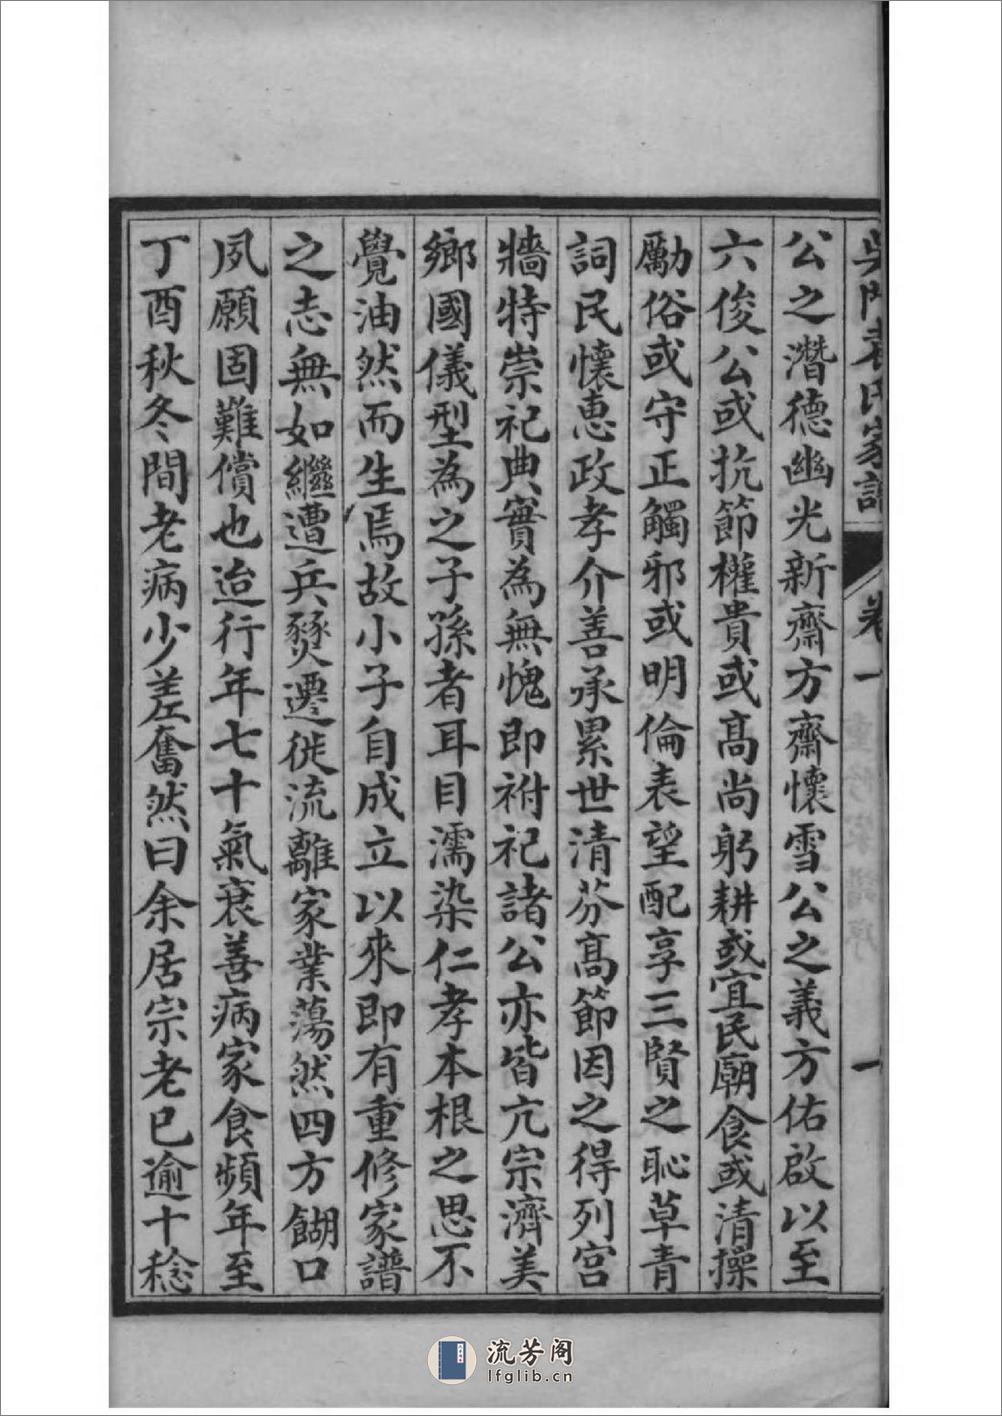 吳門袁氏家譜 卷一 一
公之潛德幽光新齋方齋懷雪公之義方佑啟以至
六俊公或抗節權貴或高尚躬耕或宜民廟食或清操
勵俗或守正觸邪或明倫表望配享三賢之恥草青
詞民懷惠政孝介善承累世清芬高節因之得列宮
牆特崇祀典實為無愧即祔祀諸公亦皆亢宗濟美
鄉國儀型為之子孫者耳目濡染仁孝本根之思不
覺油然而生焉故小子自成立以來即有重修家譜
之志無如繼遭兵燹遷徙流離家業蕩然四方餬口
夙願固難償也迨行年七十氣衰善病家食頻年至
丁酉秋冬間老病少差奮然曰余居宗老已逾十稔
流芳阁
lfglib.cn